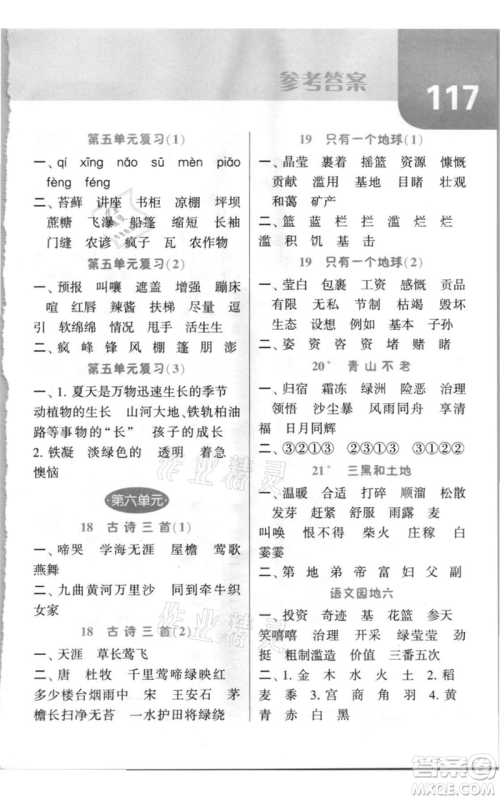 参考答案
117
第五单元复习(1)
一、qí xīng nǎo sū mèn piǎo
fèng féng
二、苔藓 讲座 书柜 凉棚 坪坝
蔗糖 飞瀑 船篷 缩短 长袖
门缝 农谚 疯子 瓦 农作物
第五单元复习(2)
一、预报 叫嚷 遮盖 增强 蹦床
喧 红唇 辣酱 扶梯 尽心尽力
引 软绵绵 情况 甩手 活生生
二、疯 峰 锋 丹枫 篷 朋 逢
第五单元复习(3)
一、1. 夏天是万物迅速生长的季节
动植物的生长 山河大地、铁轨柏油
路等事物的“长” 孩子的成长
2. 铁凝 淡绿色的 透明 着急
懊恼
第六单元
18 古诗三首(1)
一、啼哭 学海无涯 屋檐 莺歌
燕舞
二、九曲黄河万里沙 浪淘风簸自
天涯 如今直上银河去 同到牵牛织
女家
18 古诗三首(2)
一、天涯 草长莺飞
二、唐 杜牧 千里莺啼绿映红
多少楼台烟雨中 宋 王安石 茅
檐长扫净无苔 一水护田将绿绕
19 只有一个地球(1)
一、晶莹 裹着 摇篮 资源 慷慨
贡献 滥用 基地 目睹 壮观
和蔼 矿产
二、篮 蓝 栏 拦 滥 烂 烂
斓 积 饥 基 击
19 只有一个地球(2)
一、莹白 包裹 工资 感慨 贡品
有限 无私 节制 枯竭 毁坏
生态 设想 例如 基本 子孙
二、姿 资 咨 资 堵 赌 睹
20* 青山不老
一、归宿 霜冻 绿洲 险恶 治理
领悟 沙尘暴 风雨同舟 享清
福 日月同辉
二、③②①③ ②③①③ ②③①
21* 三黑和土地
一、温暖 英雄 打碎 酸痛 松散
发芽 合适 随意 翻身 蝈蝈
叫唤 恨不得 柴火 庄稼 白
霎霎
二、第 地 弟 帝 富 妇 父 副
语文园地六
一、投资 奇迹 基 花篮 参天
笑嘻嘻 治理 开采 绿莹莹 劲
挺 粗制滥造 价值 三番五次
二、1. 金 木 水 火 土 2. 稻
麦 3. 南 西 北 中 4. 黄
青 赤 白 黑